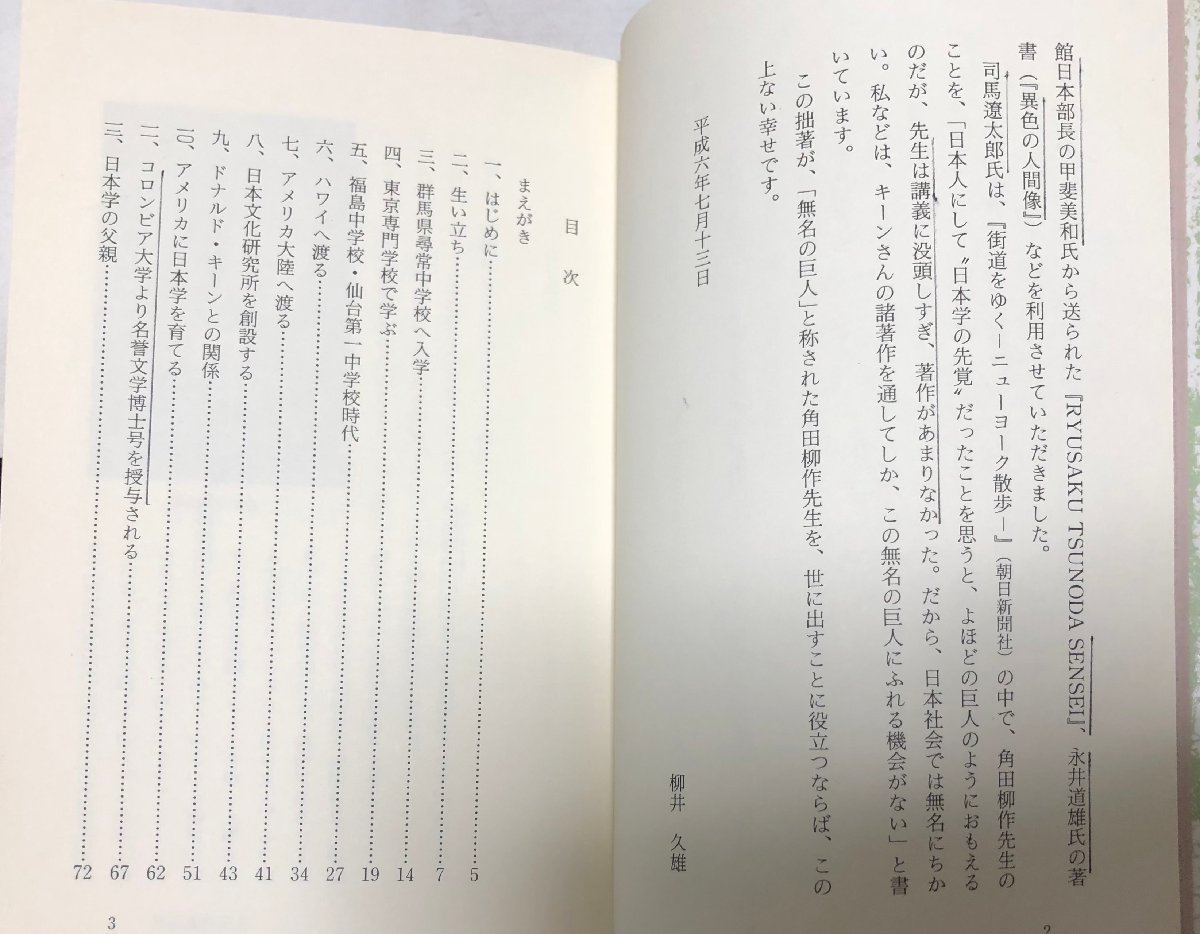 館日本部長の甲斐美和氏から送られた『RYUSAKU TSUNODA SENSEI』、永井道雄氏の著
書（『異色の人間像』）などを利用させていただきました。
司馬遼太郎氏は、『街道をゆく―ニューヨーク散歩―』（朝日新聞社）の中で、角田柳作先生の
ことを、「日本人にして〝日本学の先覚〟だったことを思うと、よほどの巨人のようにおもえる
のだが、先生は講義に没頭しすぎ、著作があまりなかった。だから、日本社会では無名にちか
い。私などは、キーンさんの諸著作を通してしか、この無名の巨人にふれる機会がない」と書
いています。
この拙著が、「無名の巨人」と称された角田柳作先生を、世に出すことに役立つならば、この
上ない幸せです。
平成六年七月十三日
柳井 久雄
2
目 次
まえがき
一、はじめに…………5
二、生い立ち…………7
三、群馬県尋常中学校へ入学…………14
四、東京専門学校で学ぶ…………19
五、福島中学校・仙台第一中学校時代…………27
六、ハワイへ渡る…………34
七、アメリカ大陸へ渡る…………41
八、日本文化研究所を創設する…………43
九、ドナルド・キーンとの関係…………51
一〇、アメリカに日本学を育てる…………62
一一、コロンビア大学より名誉文学博士号を授与される…………67
一二、日本学の父親…………72
3